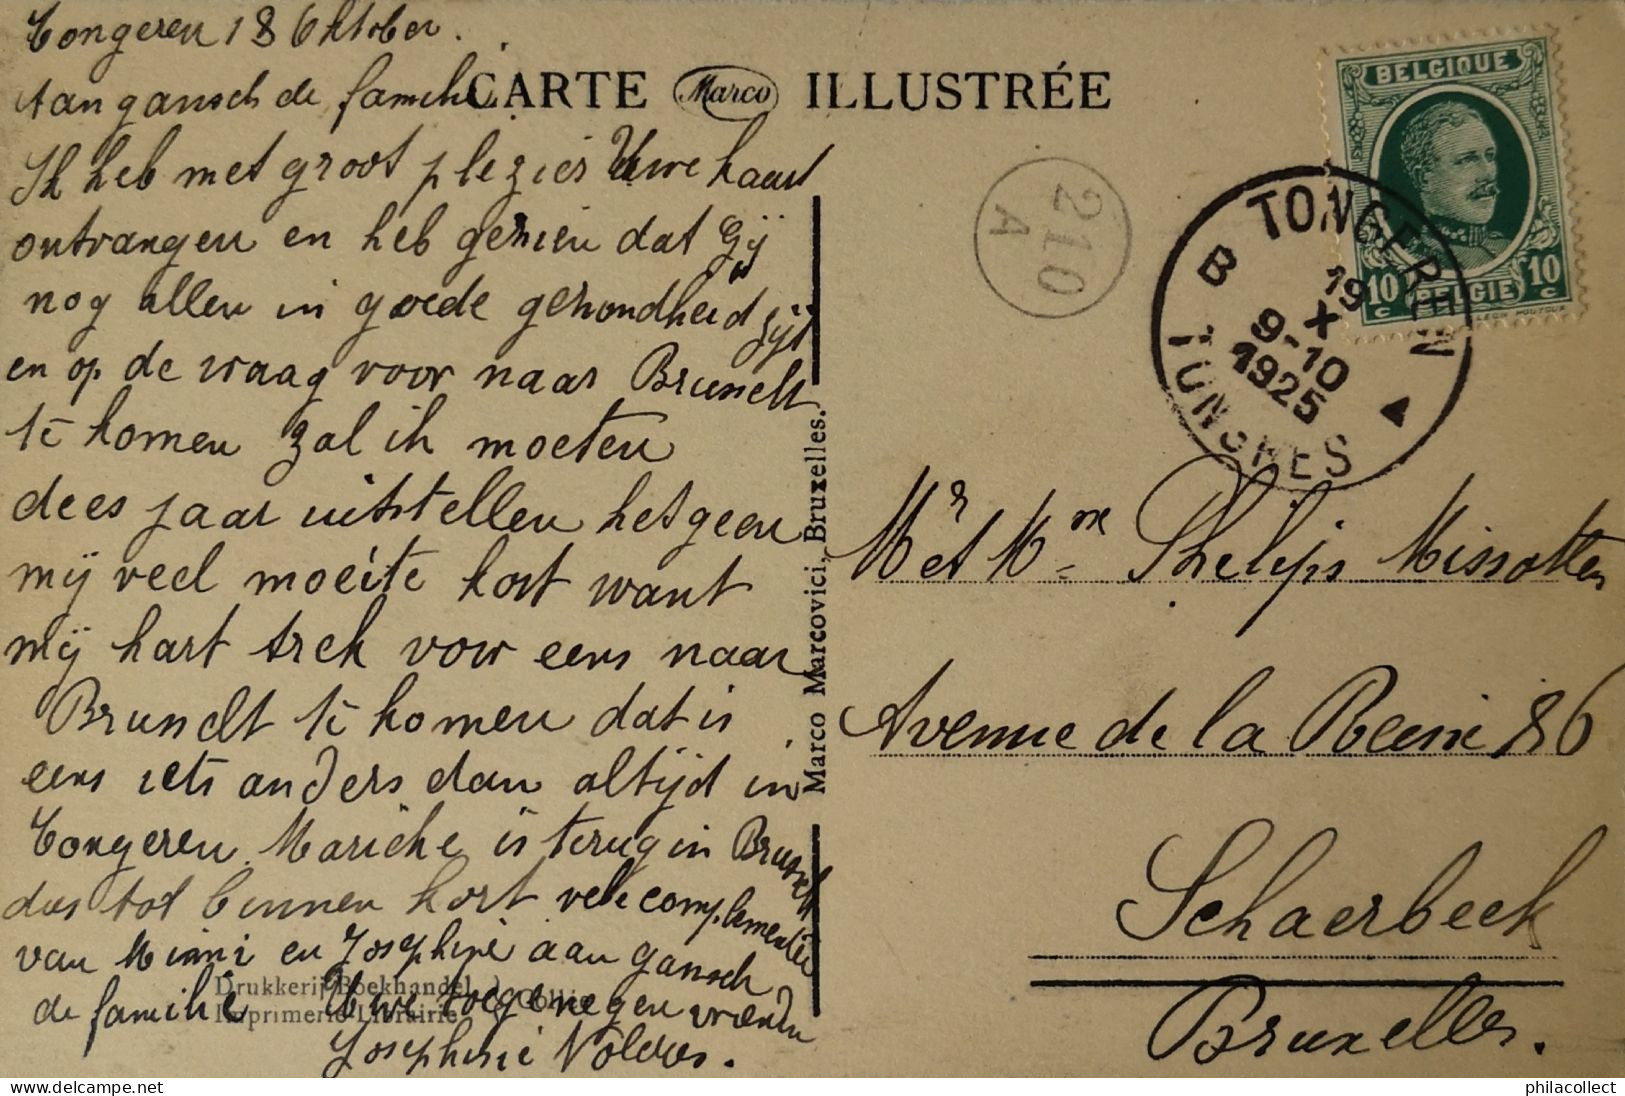 Tongeren 18 Oktober.
Aan gansch de familie
CARTE Marco ILLUSTRÉE
Ik heb met groot plezier Uwe kaart
ontvangen en heb gezien dat Gij
nog allen in goede gezondheid zijt
en op de vraag voor naar Brussel
te komen zal ik moeten
dees jaar uitstellen hetgeen
mij veel moeite kost want
mij hart trek voor eens naar
Brussel te komen dat is
eens iets anders dan altijd in
Tongeren Marieke is terug in Brussel
dus tot binnen kort vele complementen
van Mimi en Josephine aan gansch
de familie Uwe toegenegen vrienden
Josephine
Drukkerij Boekhandel
Imprimerie-Librairie
Marco Marcovici, Bruxelles.
BELGIQUE
10 c BELGIË 10 c
210
A
TONGEREN
B
19
X
9-10
1925
TONGRES
Mr et Mme Phelips Missotten
Avenue de la Reine 86
Schaerbeek
Bruxelles.
philacollect